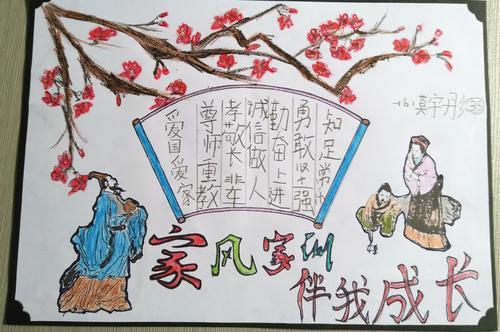 知足常乐
勇敢坚强
勤奋上进
诚信做人
孝敬长辈
尊师重教
爱国爱家
家风家训
伴我成长